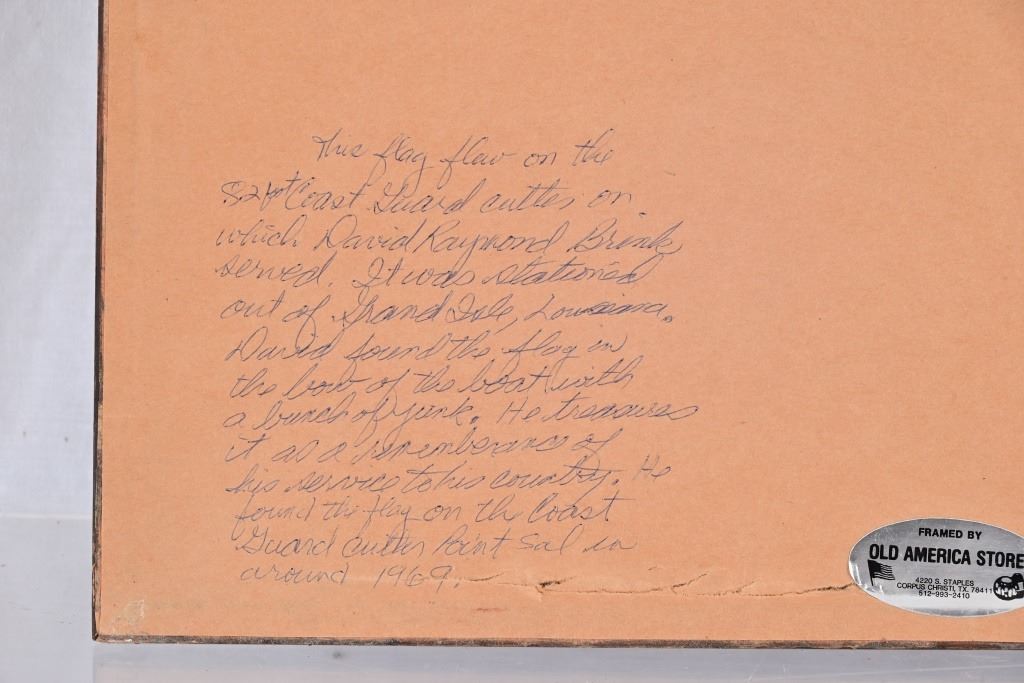 This flag flew on the
82 ft Coast Guard cutter on
which David Raymond Brink
served. It was stationed
out of Grand Isle, Louisiana.
David found the flag in
the bow of the boat with
a bunch of junk. He treasures
it as a rememberance of
his service to his country. He
found the flag on the Coast
Guard cutter Point Sal in
around 1969.
FRAMED BY
OLD AMERICA STORE
4220 S. STAPLES
CORPUS CHRISTI, TX. 78411
512-993-2410